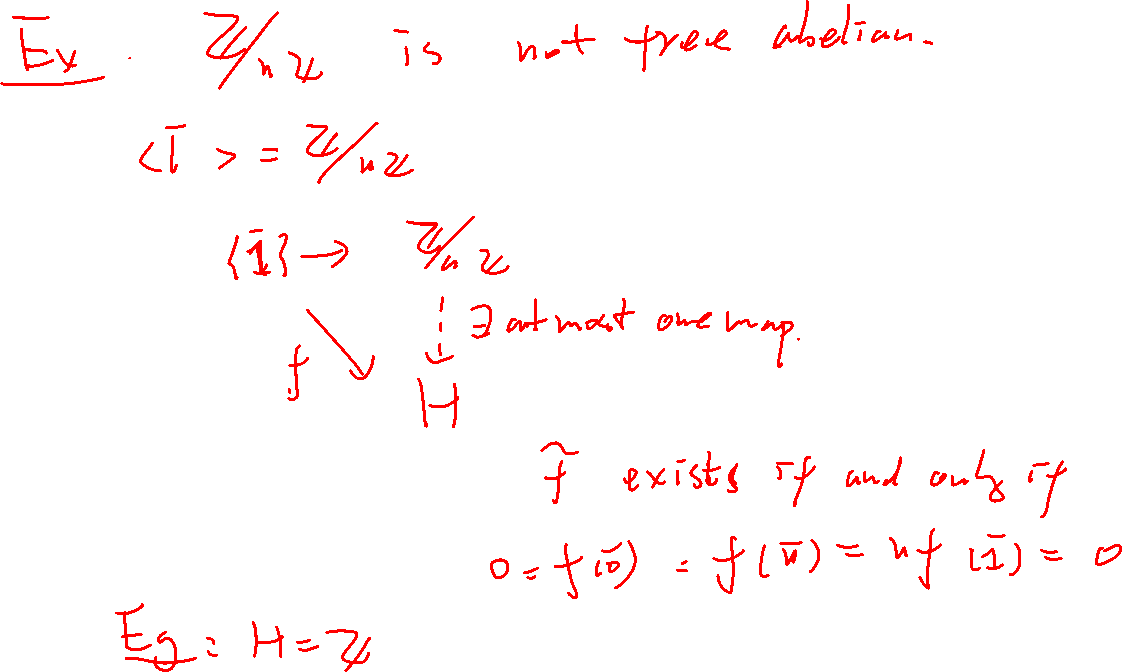 Ex. ℤ/nℤ is not free abelian.
<1̄> = ℤ/nℤ
{1̄} → ℤ/nℤ
∃ at most one map.
f
H
f̃ exists if and only if
0 = f(0̄) = f(n̄) = nf(1̄) = 0
Eg: H = ℤ